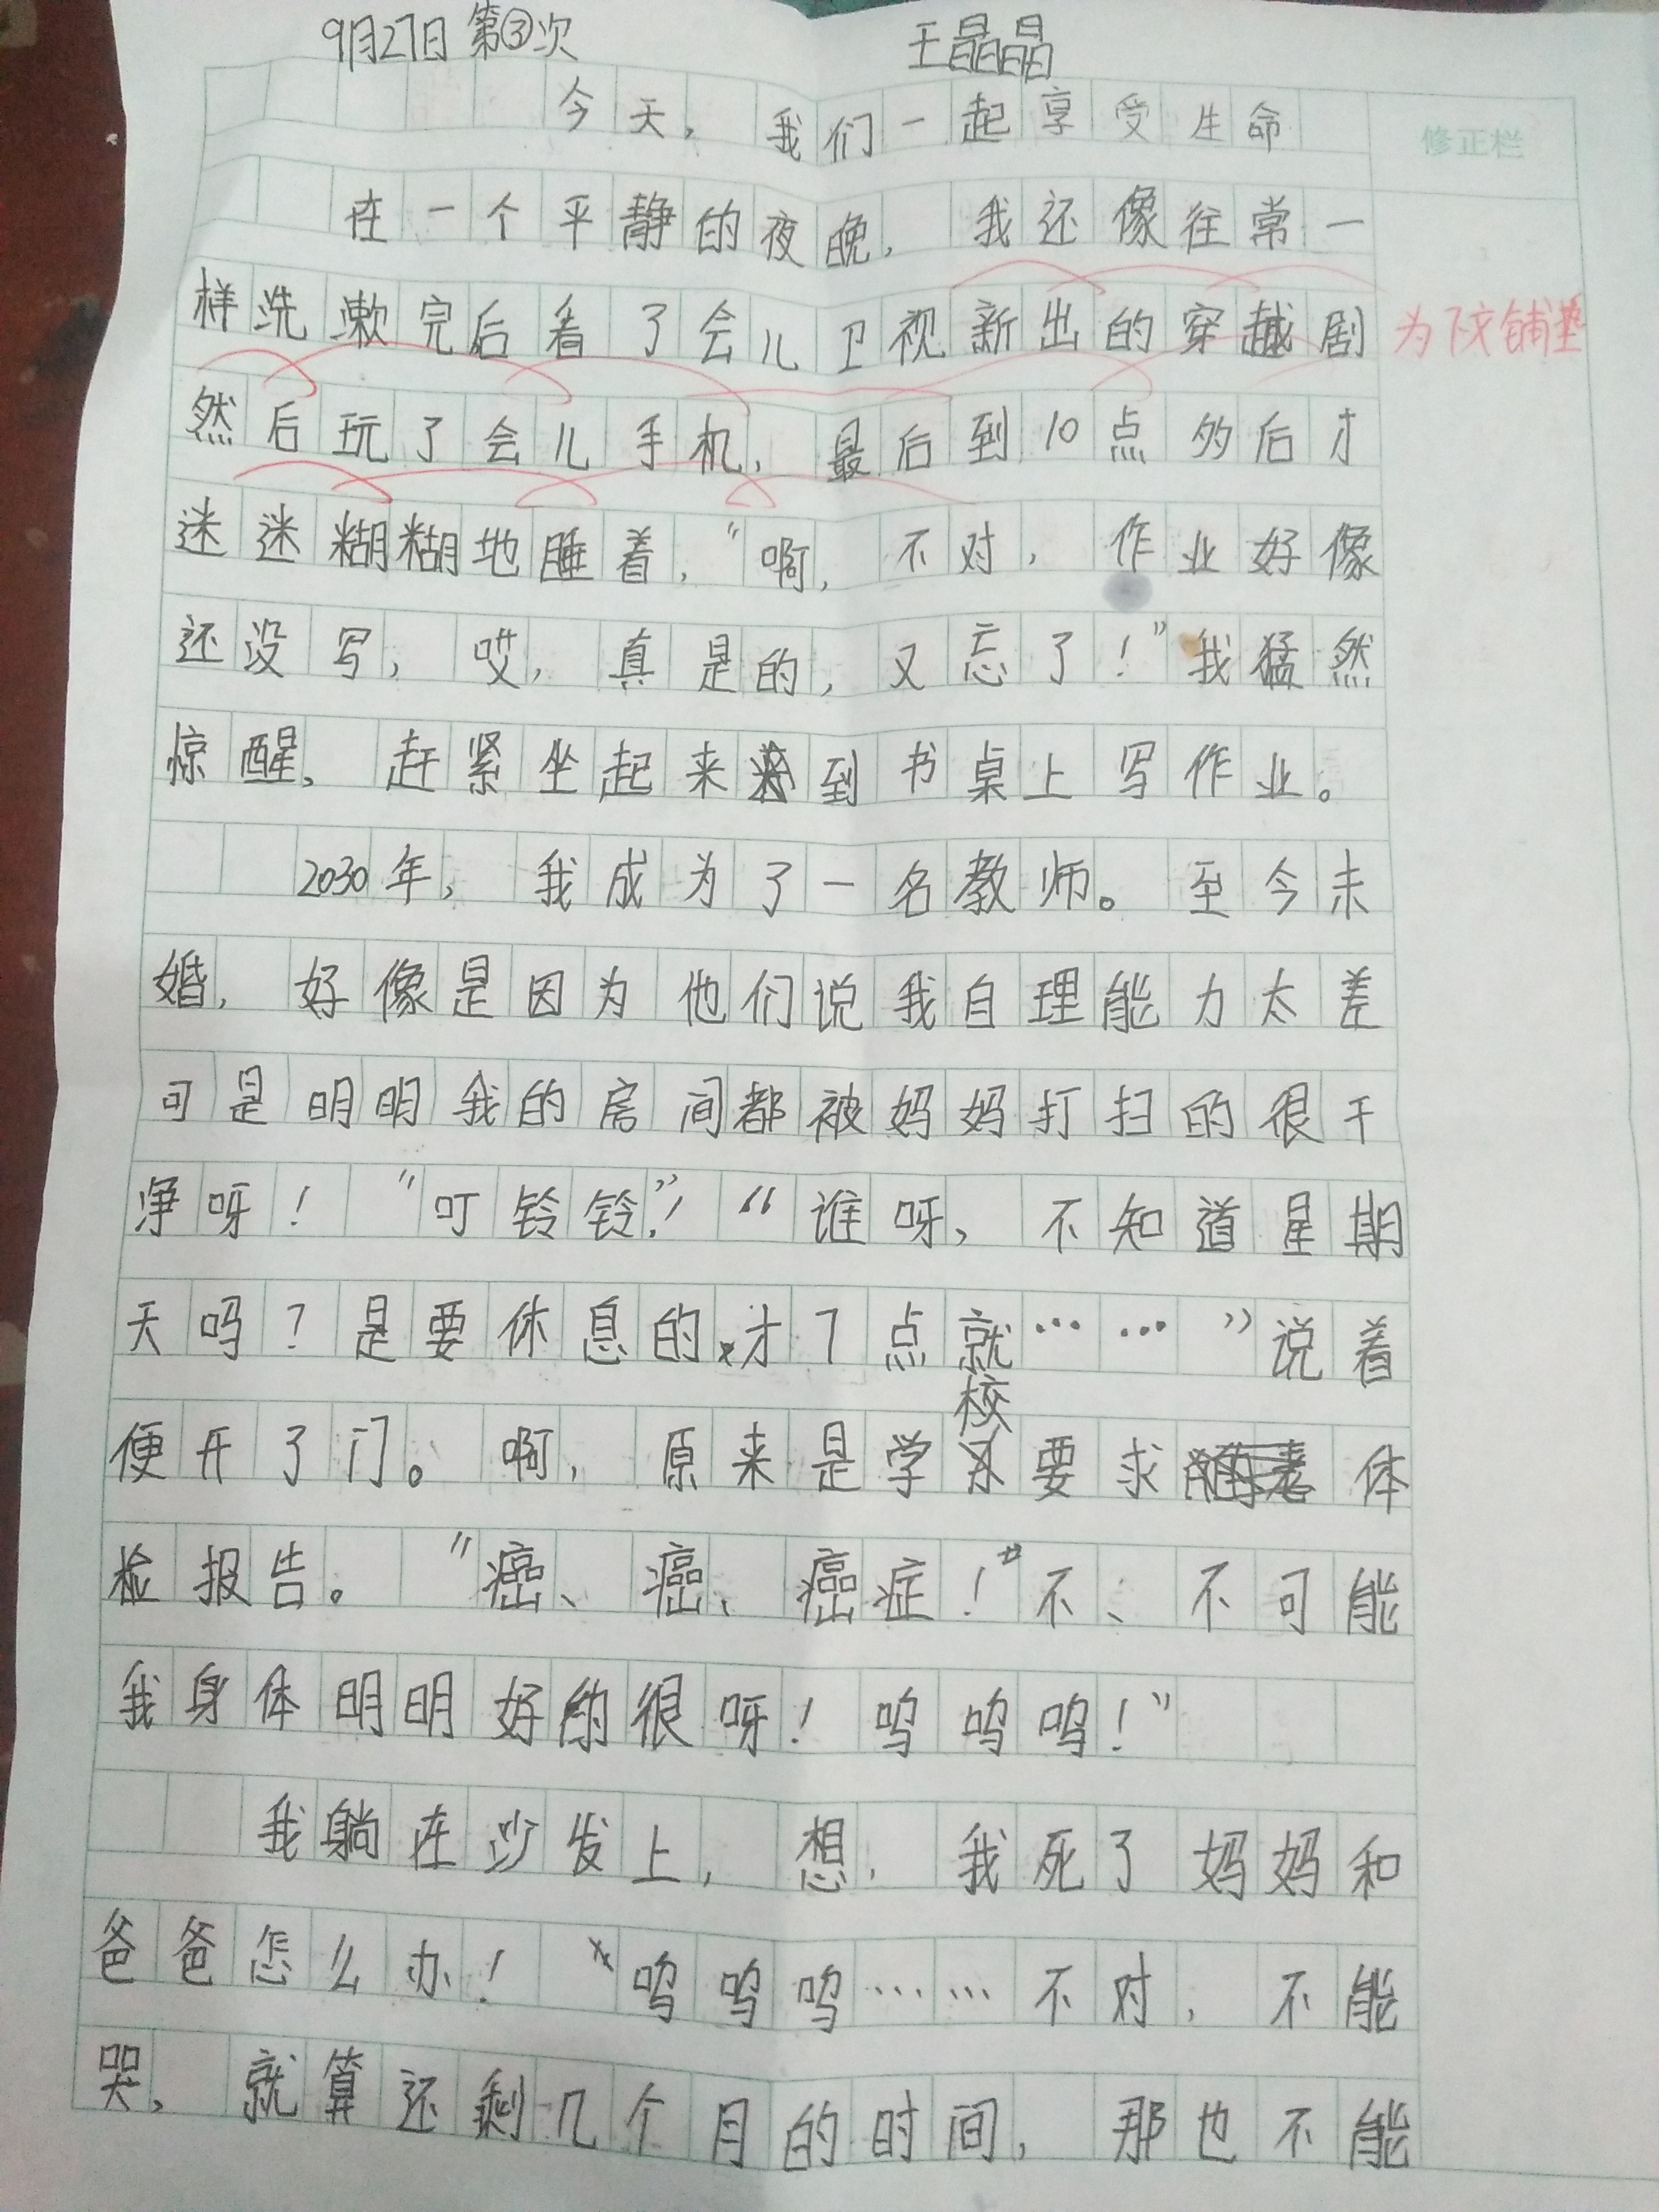 9月27日 第③次 王晶晶
今天，我们一起享受生命
修正栏
在一个平静的夜晚，我还像往常一
样洗漱完后看了会儿卫视新出的穿越剧
为下文铺垫
然后玩了会儿手机，最后到10点多后才
迷迷糊糊地睡着，“啊，不对，作业好像
还没写，哎，真是的，又忘了！”我猛然
惊醒，赶紧坐起来到书桌上写作业。
2030年，我成为了一名教师。至今未
婚，好像是因为他们说我自理能力太差
可是明明我的房间都被妈妈打扫的很干
净呀！“叮铃铃”！“谁呀，不知道星期
天吗？是要休息的，才7点就……”说着
便开了门。啊，原来是学校要求体
检报告。“癌、癌、癌症！”不、不可能
我身体明明好的很呀！呜呜呜！”
我躺在沙发上，想，我死了妈妈和
爸爸怎么办！“呜呜呜……不对，不能
哭，就算还剩几个月的时间，那也不能